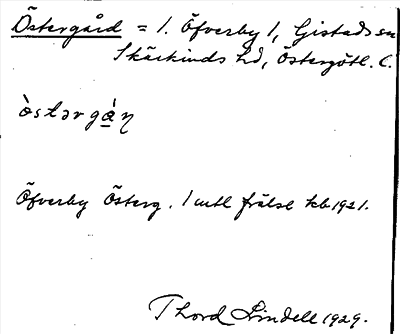 Östergård = 1. Öfverby 1, Gistads sn
Skärkinds hd, Östergötl. C.
òstərgà̠ṇ
Öfverby Österg. 1 mtl frälse kb 1921.
Thord Lindell 1929.